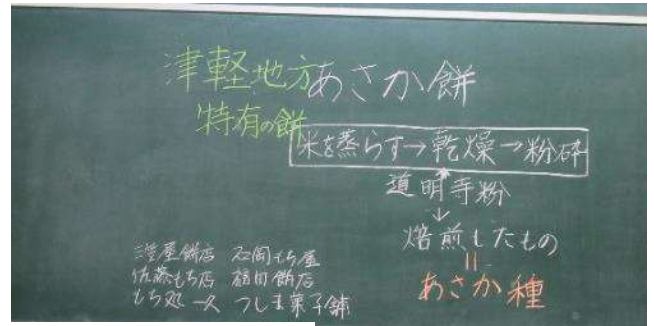 津軽地方
特有の餅
あさか餅
米を蒸らす→乾燥→粉砕
道明寺粉
↓
焙煎したもの
||
あさか種
澁屋餅店 石岡もち屋
佐藤もち店 福田餅店
もち処一久 つしま菓子舗